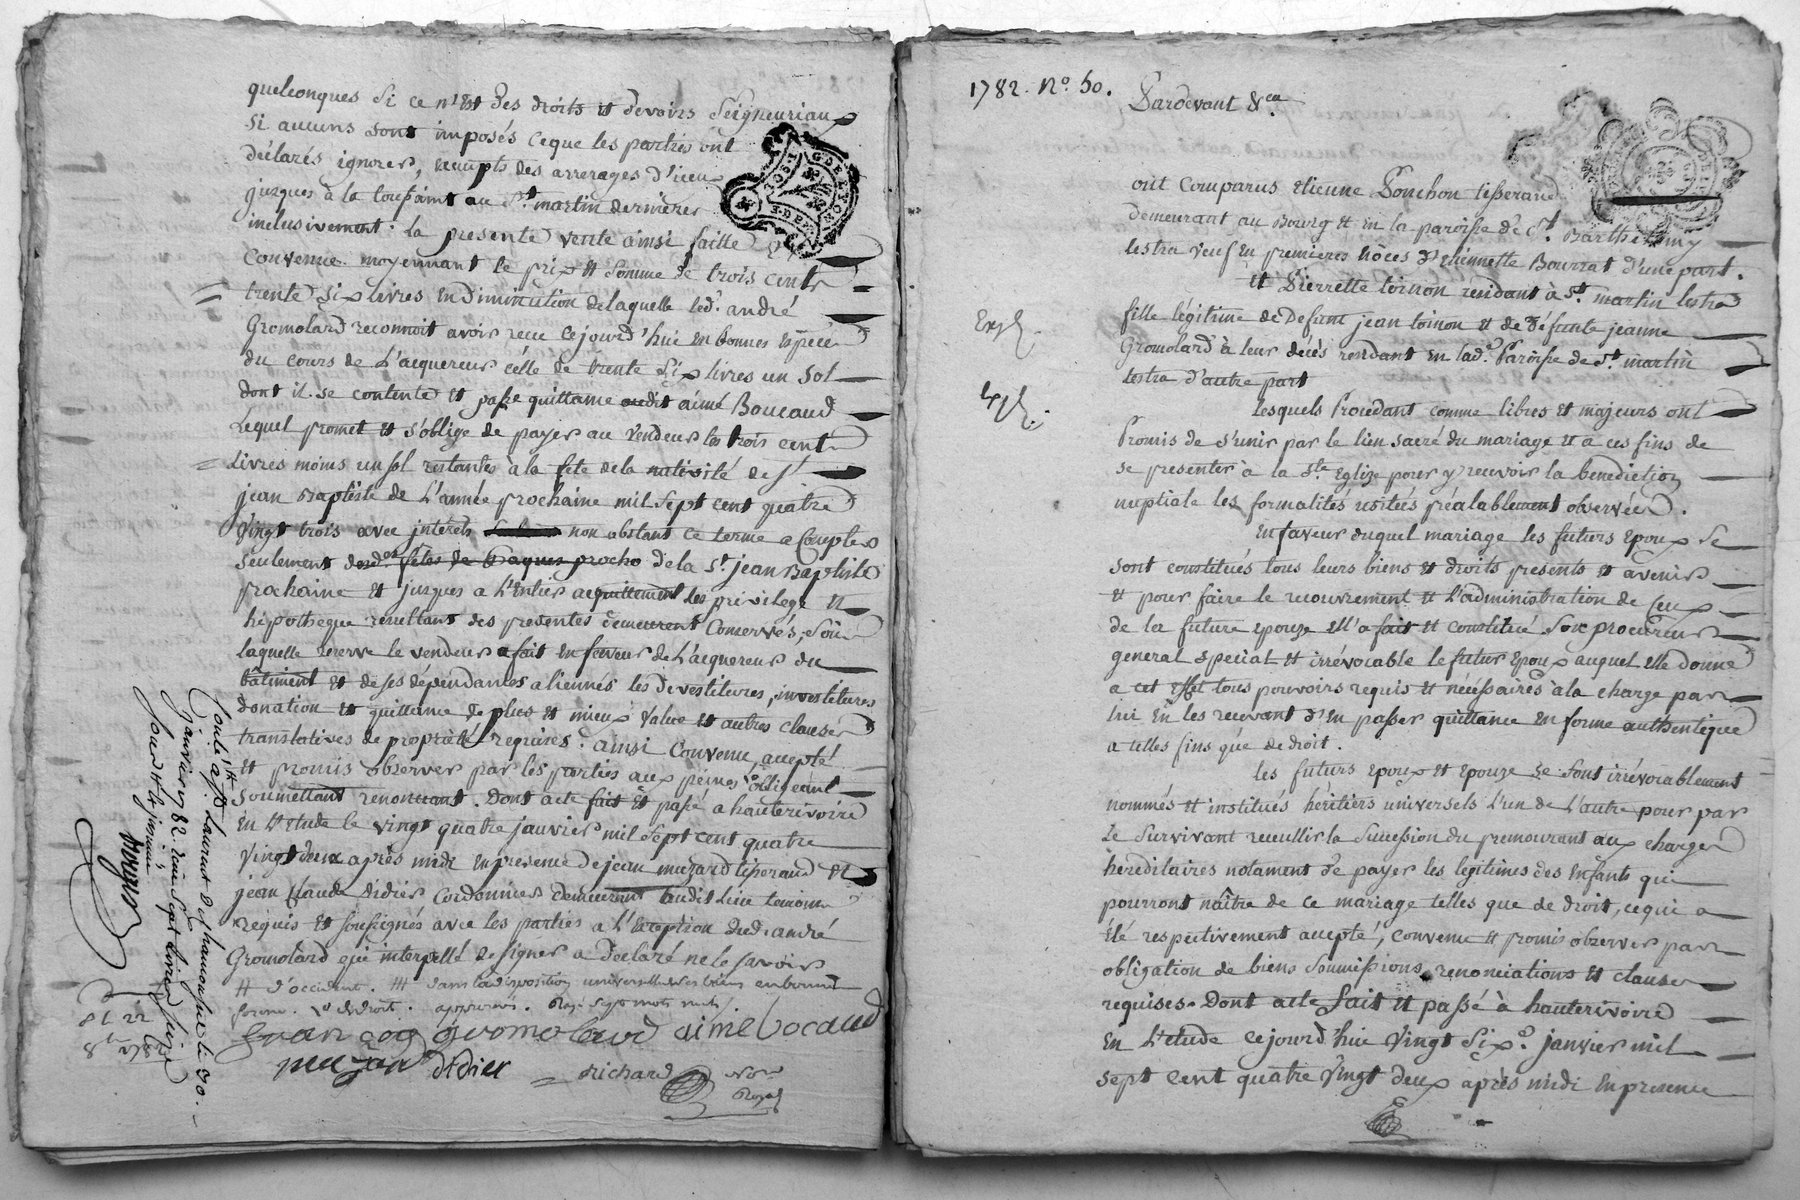 quelconques si ce n'est des droits et devoirs seigneuriaux
si aucuns sont imposés ceque les parties ont
déclarés ignorer, exempts des arrerages d'iceux
jusques à la toussaint au St. martin dernières
inclusivement. la presente vente ainsi faitte et
convenue moyennant le prix et somme de trois cents
trente six livres en diminution delaquelle led. andré
Gromolard reconnoit avoir recu cejourd'hui en bonnes espèces
du cours de L'acquereur celle de trente six livres un sol
dont il se contente et passe quittance audit aimé Boucaud
Lequel promet et s'oblige de payer au vendeur les trois cent
Livres moins un sol restantes à la fete dela nativité de st.
jean Baptiste de L'année prochaine mil sept cent quatre
vingt trois avec intérets non obstant ce terme a compter
seulement desd. fêtes de Paques procho dela St. jean Baptiste
prochaine et jusques a L'entier acquittement les privilege et
hipotheque resultant des presentes demeurent conservés, sous
laquelle reserve le vendeur a fait en faveur de L'acquereur du
bâtiment et de ses dépendances aliennés les devestitures, investitures
donation et quittance de plus et mieux value et autres clauses
translatives de propriété requises. ainsi convenu, accepté
et promis observer par les parties aux peines obligeant
soumettant renoncant. Dont acte fait et passé a hauterivoire
en L'etude le vingt quatre janvier mil sept cent quatre
vingt deux après midi en presence de jean muzard tisserand et
jean claude didier cordonnier demeurant audit lieu temoins
requis et soussignés avec les parties a L'exception dud. andré
Gromolard qui interpellé de signer a declaré ne le savoir
# d'occident. ## dans la disposition universelle des biens en bonne
forme. de droit. approuvés. Rayé sept mots nuls
françois gromolard aimé bocaud
muzard didier = Richard Nore
Royal
Controlé à St. Laurent de chamousset le 30.
janvier 1782. Reçu sept livres
1782. No. 50.
Pardevant &ca
ont comparus Etienne Ponchon tisserand
demeurant au Bourg et en la paroisse de St. Barthelemy
lestra veuf en premieres nôces d'Etiennette Bourrat d'une part.
et Pierrette toinon residant à St. martin lestra
fille légitime de Defunt jean toinon et de défunte jeanne
Gromolard à leur décès residant en lad. Paroisse de St. martin
lestra d'autre part
Expé.
Expé.
lesquels Procedant comme libres et majeurs ont
Promis de s'unir par le lien sacré du mariage et a ces fins de
se presenter à la Ste. Eglize pour y recevoir la benediction
nuptiale les formalités usitées préalablement observées.
En faveur duquel mariage les futurs Epoux se
sont constitués tous leurs biens et droits presents et avenir
et pour faire le recouvrement et L'administration de ceux
de la future epouze elle a fait et constitué son procureur
general special et irrévocable le futur Epoux auquel elle donne
a cet effet tous pouvoirs requis et nécéssaires à la charge par
lui en les recevant d'en passer quittance en forme authentique
a telles fins que de droit.
les futurs Epoux et Epouze se sont irrévocablement
nommés et institués héritiers universels L'un de L'autre pour par
Le survivant recueillir la succession du premourant aux charges
héréditaires notament de payer les légitimes des enfants qui
pourront nâitre de ce mariage telles que de droit, cequi a
été respectivement accepté, convenu et promis observer par
obligation de biens soumissions renonciations et clauses
requises. Dont acte fait et passé à hauterivoire
En L'etude cejourd'hui vingt six. janvier mil
sept cent quatre vingt deux après midi en presence